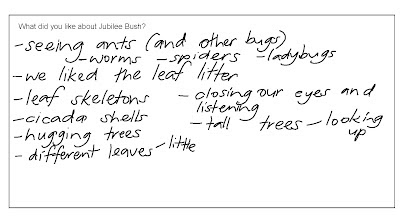 What did you like about Jubilee Bush?
-seeing ants (and other bugs)
-worms -spiders -ladybugs
-we liked the leaf litter
-leaf skeletons
-closing our eyes and
listening
-cicada shells
-tall trees -looking
up
-hugging trees
-different leaves -little